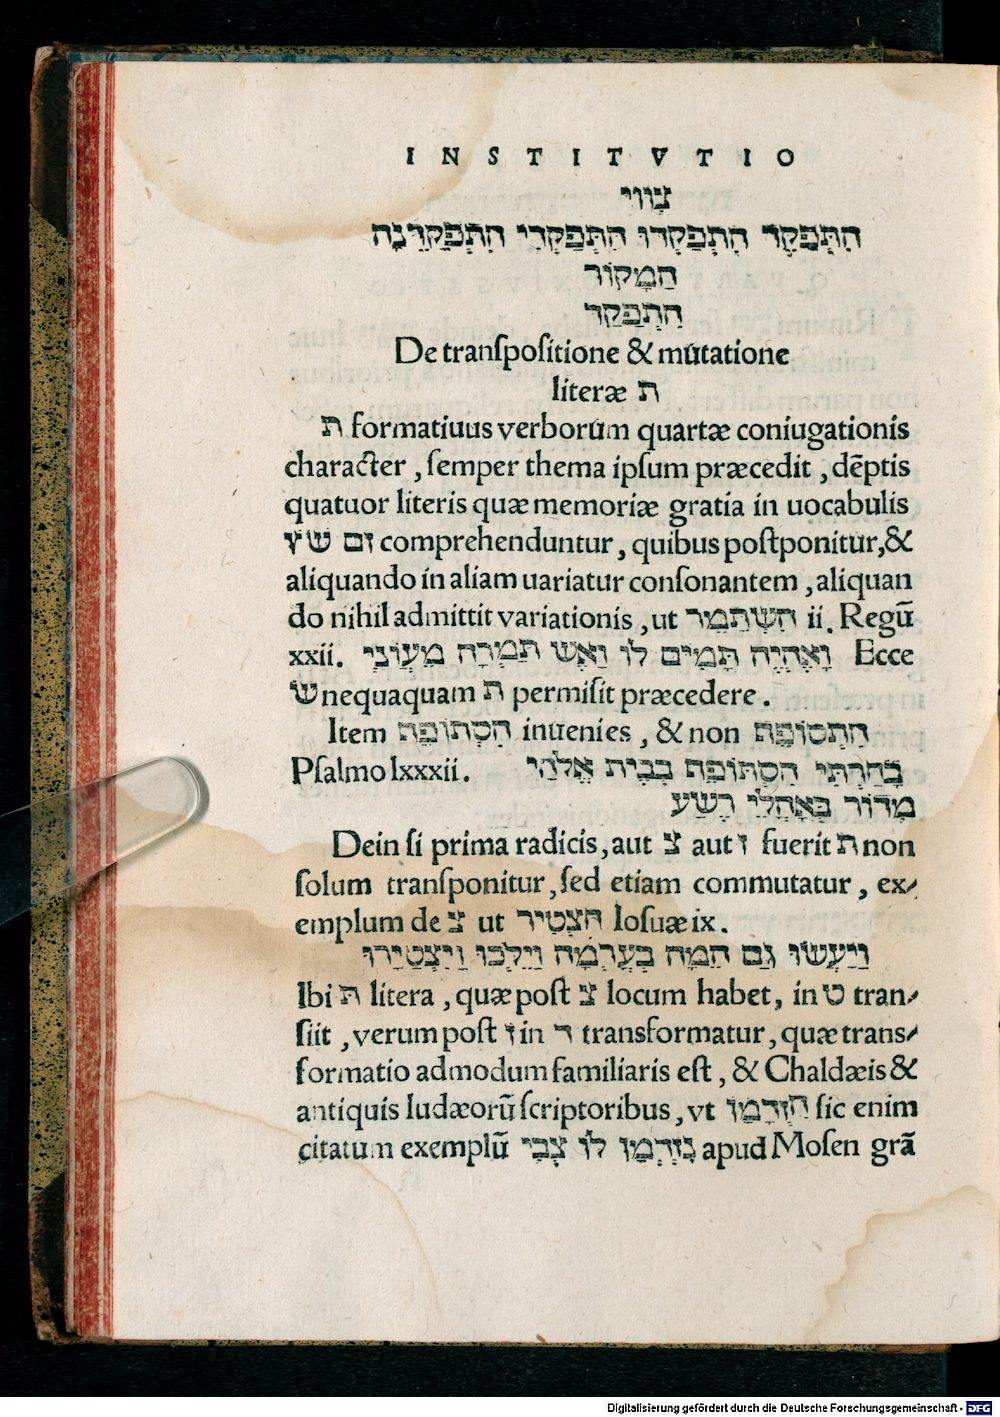 INSTITVTIO
צִוּוּי
הִתְפַּקֵּד הִתְפַּקְּדוּ הִתְפַּקְּדִי הִתְפַּקֵּדְנָה
הַמָּקוֹר
הִתְפַּקֵּד
De transpositione & mutatione
literæ ת
ת formatiuus verborum quartæ coniugationis
character, semper thema ipsum præcedit, dēptis
quatuor literis quæ memoriæ gratia in uocabulis
זם שץ comprehenduntur, quibus postponitur, &
aliquando in aliam uariatur consonantem, aliquan
do nihil admittit variationis, ut הִשְׁתַּמֵּר ii. Regū
xxii. וָאֶהְיֶה תָמִים לוֹ וָאֶשְׁתַּמְּרָה מֵעֲוֹנִי Ecce
ש nequaquam ת permisit præcedere.
Item הִסְתּוֹפֵף inuenies, & non הִתְסוֹפֵף
Psalmo lxxxii. בָּחַרְתִּי הִסְתּוֹפֵף בְּבֵית אֱלֹהַי
מִדּוּר בְּאָהֳלֵי רֶשַׁע
Dein si prima radicis, aut צ aut ז fuerit ת non
solum transponitur, sed etiam commutatur, ex-
emplum de צ ut הִצְטַיֵּר Iosuæ ix.
וַיַּעֲשׂוּ גַם הֵמָּה בְּעָרְמָה וַיֵּלְכוּ וַיִּצְטַיָּרוּ
Ibi ת litera, quæ post צ locum habet, in ט tran-
siit, verum post ז in ד transformatur, quæ trans-
formatio admodum familiaris est, & Chaldæis &
antiquis Iudæorū scriptoribus, vt הִזְדַּמֵּן sic enim
citatum exemplū נִזְדַּמֵּן לוֹ צְבִי apud Mosen grā
Digitalisierung gefördert durch die Deutsche Forschungsgemeinschaft - DFG